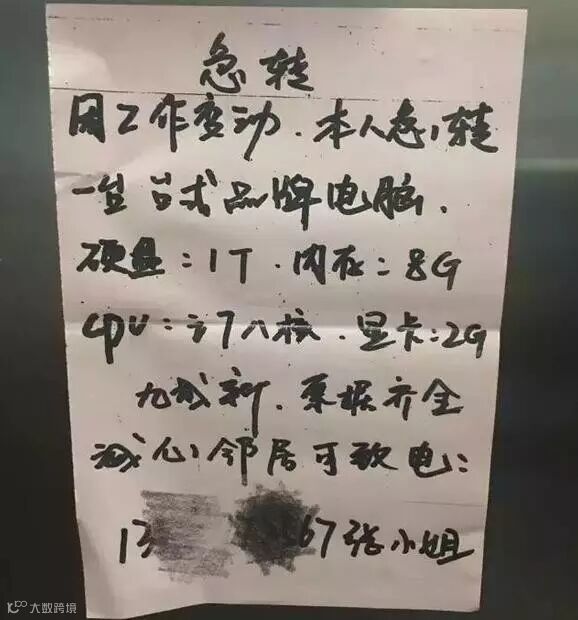 急转
因工作变动.本人急转
一台台式品牌电脑.
硬盘:1T.内存:8G
CPU:i7八核.显卡:2G
九成新.票据齐全
诚心邻居可致电:
13 67张小姐
大数跨境